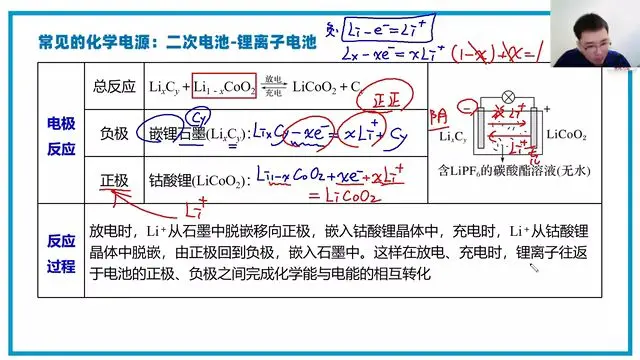 常见的化学电源：二次电池-锂离子电池
负 Li-e⁻=Li⁺
Lx-xe⁻=xLi⁺ (1-x)+x=1
电极反应
总反应 LixCy+Li1-xCoO2 ⇌ LiCoO2+Cy
放电
充电
正正
Cy
负极 嵌锂石墨(LixCy): LixCy-xe⁻=xLi⁺+Cy
正极 钴酸锂(LiCoO2): Li1-xCoO2+xe⁻+xLi⁺
=LiCoO2
Li⁺
阴
- +
放 Li⁺
Li⁺
充
LixCy LiCoO2
含LiPF6的碳酸酯溶液(无水)
反应过程
放电时，Li⁺从石墨中脱嵌移向正极，嵌入钴酸锂晶体中，充电时，Li⁺从钴酸锂
晶体中脱嵌，由正极回到负极，嵌入石墨中。这样在放电、充电时，锂离子往返
于电池的正极、负极之间完成化学能与电能的相互转化